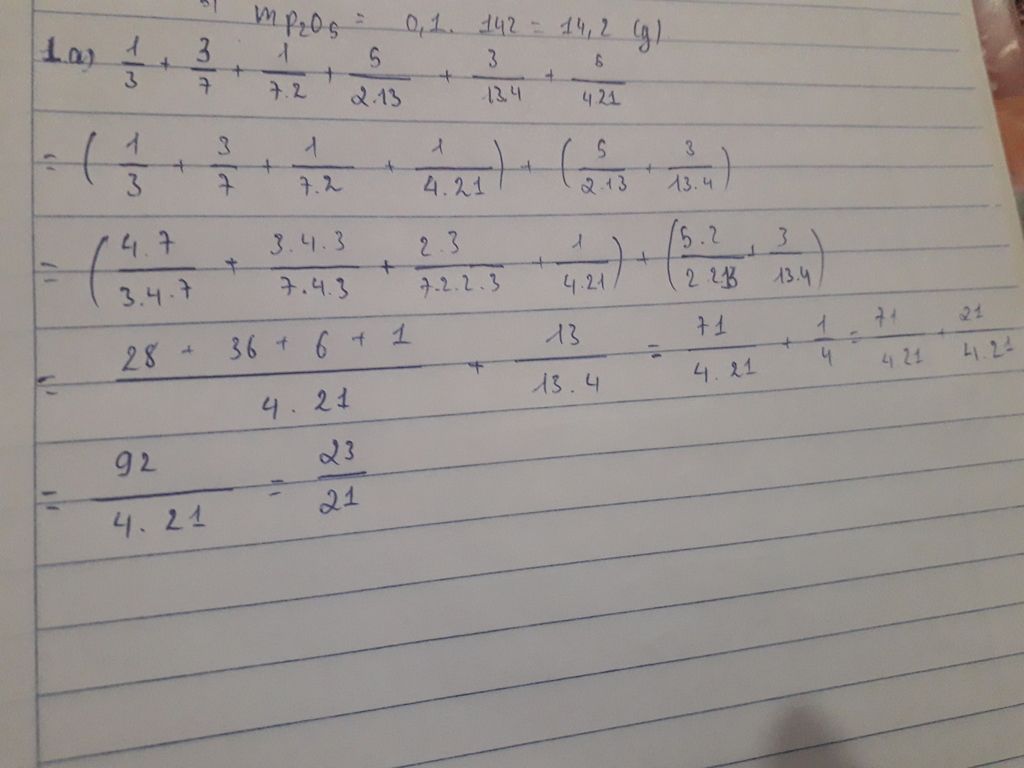 mP₂O₅ = 0,1. 142 = 14,2 (g)
1.a) 1/3 + 3/7 + 1/7.2 + 5/2.13 + 3/13.4 + 5/4.21
= (1/3 + 3/7 + 1/7.2 + 1/4.21) + (5/2.13 + 3/13.4)
= (4.7/3.4.7 + 3.4.3/7.4.3 + 2.3/7.2.2.3 + 1/4.21) + (5.2/2.2.13 + 3/13.4)
= 28 + 36 + 6 + 1/4.21 + 13/13.4 = 71/4.21 + 1/4 = 71/4.21 + 21/4.21
= 92/4.21 = 23/21